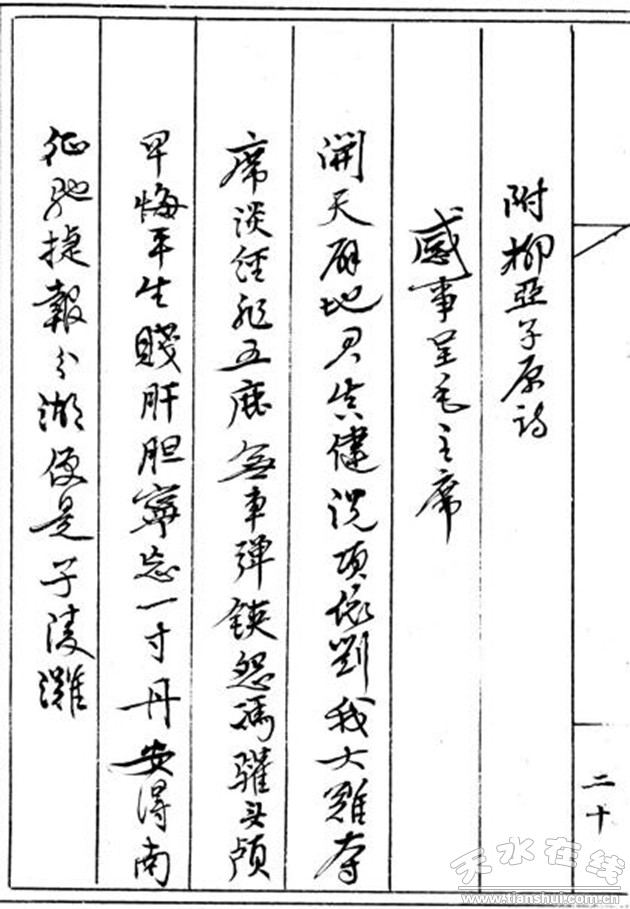 二十
附柳亞子原诗
感事呈毛主席
開天辟地君真健説項依劉我大難夺
席谈经非五鹿無車弹铗怨馮驩头颅
早悔平生賤肝胆寧忘一寸丹安得南
征馳捷報分湖便是子陵灘
天水在线
www.tianshui.com.cn